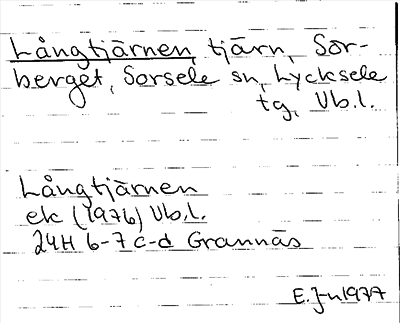 Långtjärnen, tjärn, Sor-
berget, Sorsele sn, Lycksele
tg, Vb.l.
Långtjärnen
ek (1976) Vb.l.
24H 6-7 c-d Grannäs
E. J-n 1977